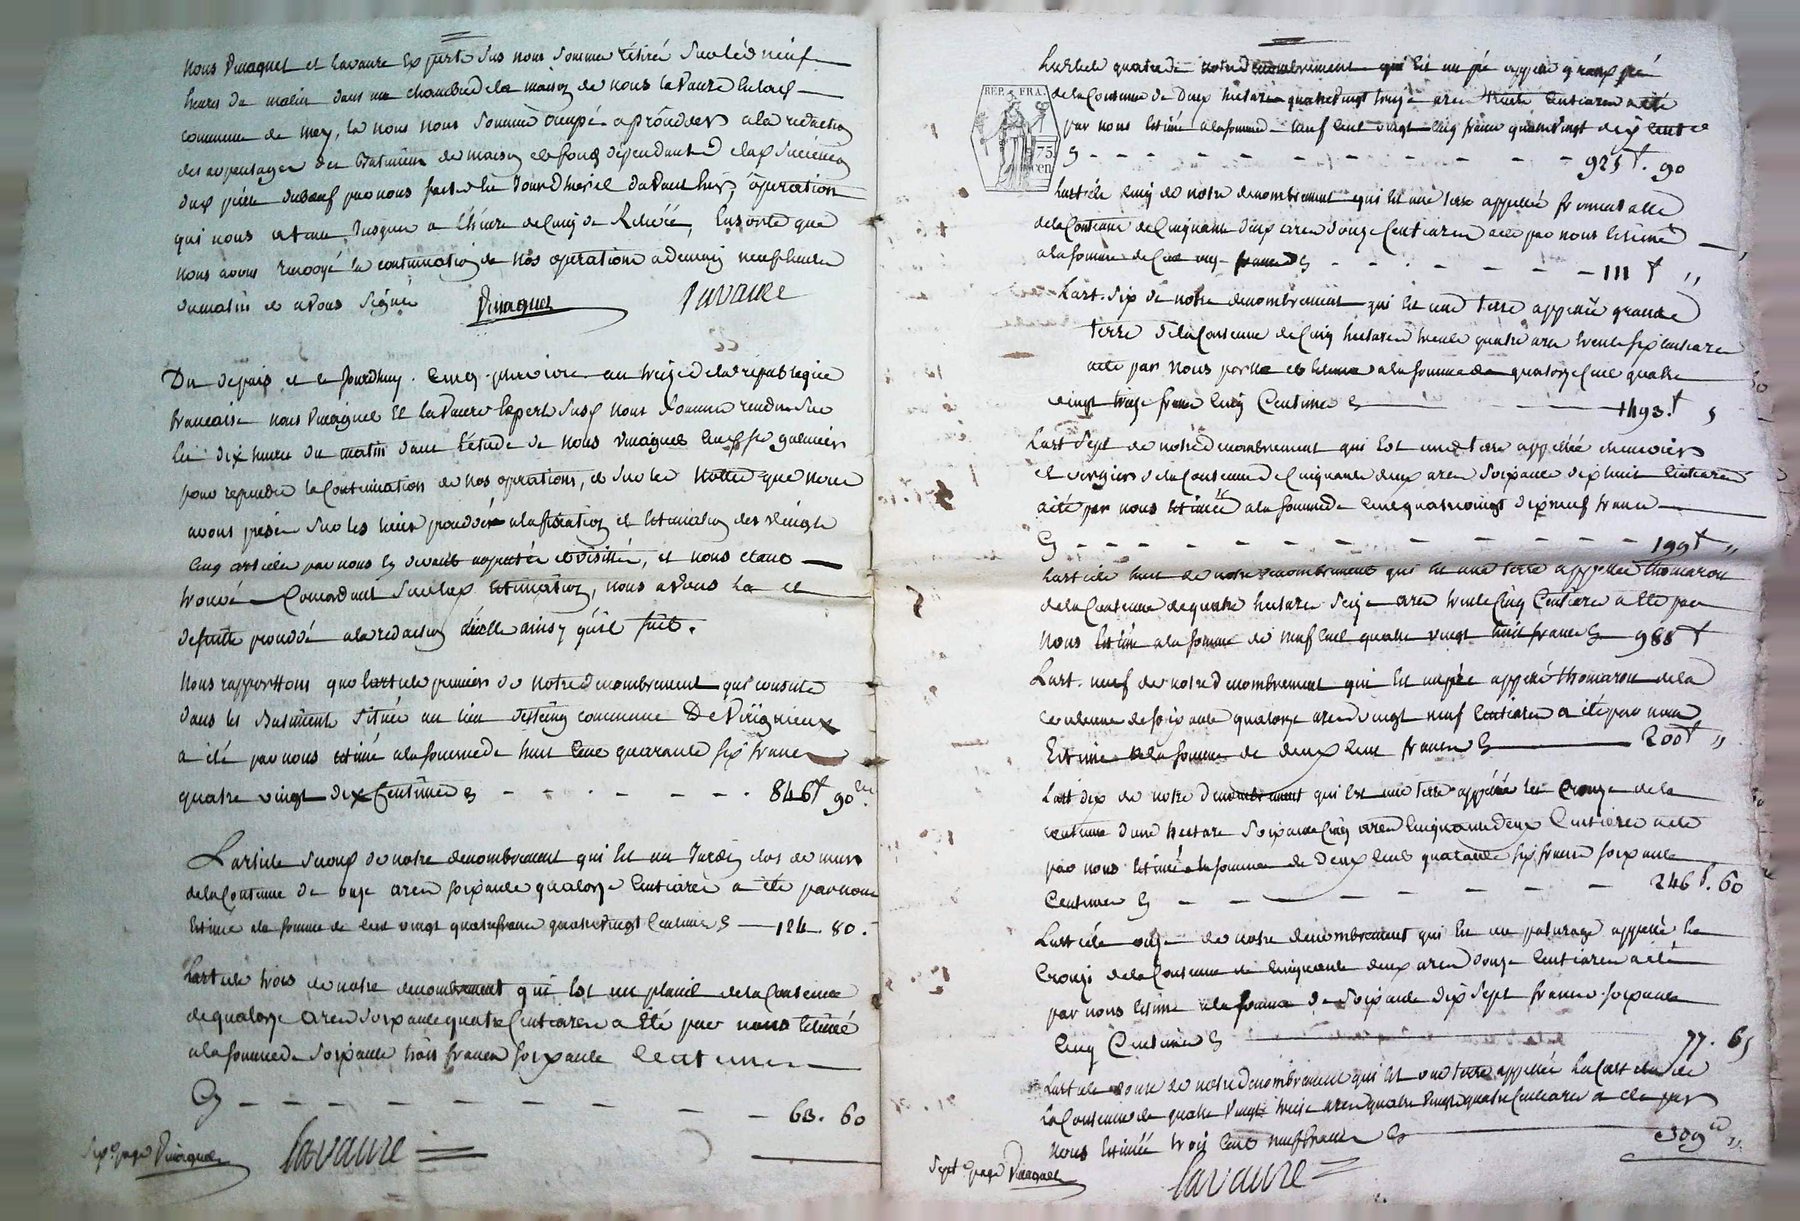 nous vinaguet et lavaure Experts sus nous somme rétirée sur les neuf
heure du matin dans une chambre de la maison de nous lavaure en la
commune de mey, la nous nous somme occupé a procéder a la redaction
des arpentages des Batiment de maison et fonds dépendant de la succession
par nous fait le jourdhier et davant hier, opération
qui nous a tenu jusques a l'heure de cinq de Relevée, Ensorte que
nous avons renvoyé la continuation de nos opérations a demain neuf heure
du matin et avons signé Vinaguet lavaure
Du depuis et le jourdhuy cinq pluviose an treize de la republique
francaise nous vinaguet et lavaure Expert susd nous somme rendu sur
les dix heure du matin dans l'étude de nous vinaguet
pour reprendre la Continuation de nos opérations, et sur les Notte que nous
avons prise sur les lieux procédér a la fixation et Estimation des vingt
cinq articles par nous cy devant arpentée et visitée, et nous étant
trouvé Concordant sur lad Estimation, nous avons la et
desuitte procédé a la redaction d'icelle ainsy qu'il suit.
Nous rapporttons que l'article premier de notre denombrement qui consiste
dans les Batiment située au lieu commune De Virignieux
a été par nous estimé a la somme de huit cent quarante six franc
quatre vingt dix Centimes cy - - - - - - 846f 90c.
L'article second de notre denombrement qui est un Jardin clos de murs
de la Contenue de onze ares soixante quatorze Centiares a été par nous
Estimé a la somme de cent vingt quatre franc quatre vingt Centimes cy — 124. 80.
L'article trois de notre denombrement qui est un placil de la Contenue
de quatorze ares soixante quatre Centiares a été par nous Estimé
a la somme de soixante trois francs soixante Centimes
Cy - - - - - - - - - 63. 60
Sixe page Vinaguet lavaure
L'article quatre de notre denombrement qui est un pré appellé grand pré
REP. FRA.
75
cen
de la Contenue de Deux hectares quatre vingt treize ares trente Centiares a été
par nous Estimé a la somme neuf cent vingt cinq francs quatre vingt dix cent e
cy - - - - - - - - - - 925f. 90
L'article cinq de notre denombrement qui est une terre appellée
de la Contenue de Cinquante six ares douze Centiares a été par nous Estimé
a la somme de Cent onze francs cy - - - - - - 111f „
L'art. six de notre denombrement qui est une terre appellée grande
terre de la Contenue de Cinq hectares trente quatre ares trente six centiares
a été par Nous portée et Estimé a la somme de quatorze Cent quatre
vingt treize francs cinq Centimes cy — 1493.f 5
L'art sept de notre denombrement qui est une terre appellée chenevier
et vergier de la Contenue de Cinquante deux ares soixante dix huit Centiares
a été par nous Estimée a la somme de Cent quatre vingt dix neuf francs
Cy - - - - - - - - - - - 199f „
L'article huit de notre denombrement qui est une terre appellée thomarou
de la Contenue de quatre hectares seize ares trente Cinq Centiares a été par
Nous Estimé a la somme de neuf cent quatre vingt huit francs cy 988f
L'art. neuf de notre denombrement qui est un pré appellé thomarou de la
contenue de soixante quatorze ares vingt neuf Centiares a été par nous
Estimé a la somme de deux Cent francs cy — 200f „
L'art dix de notre denombrement qui est une terre appellée les Crouze de la
contenue d'une hectare soixante Cinq ares Cinquante deux Centiares a été
par nous Estimé a la somme de deux Cent quarante six francs soixante
Centimes cy - - - - - - - - 246f. 60
L'article onze de notre denombrement qui est un paturage appellé les
Crouze de la Contenue de Cinquante deux ares douze Centiares a été
par nous Estimé a la somme de soixante dix sept francs soixante
Cinq Centimes cy — 77. 65
L'article douze de notre denombrement qui est une terre appellée de
la Contenue de quatre vingt treize ares quatre vingt quatre Centiares a été par
Nous Estimée trois Cent neuf francs cy — 309 „
Septe page Vinaguet lavaure